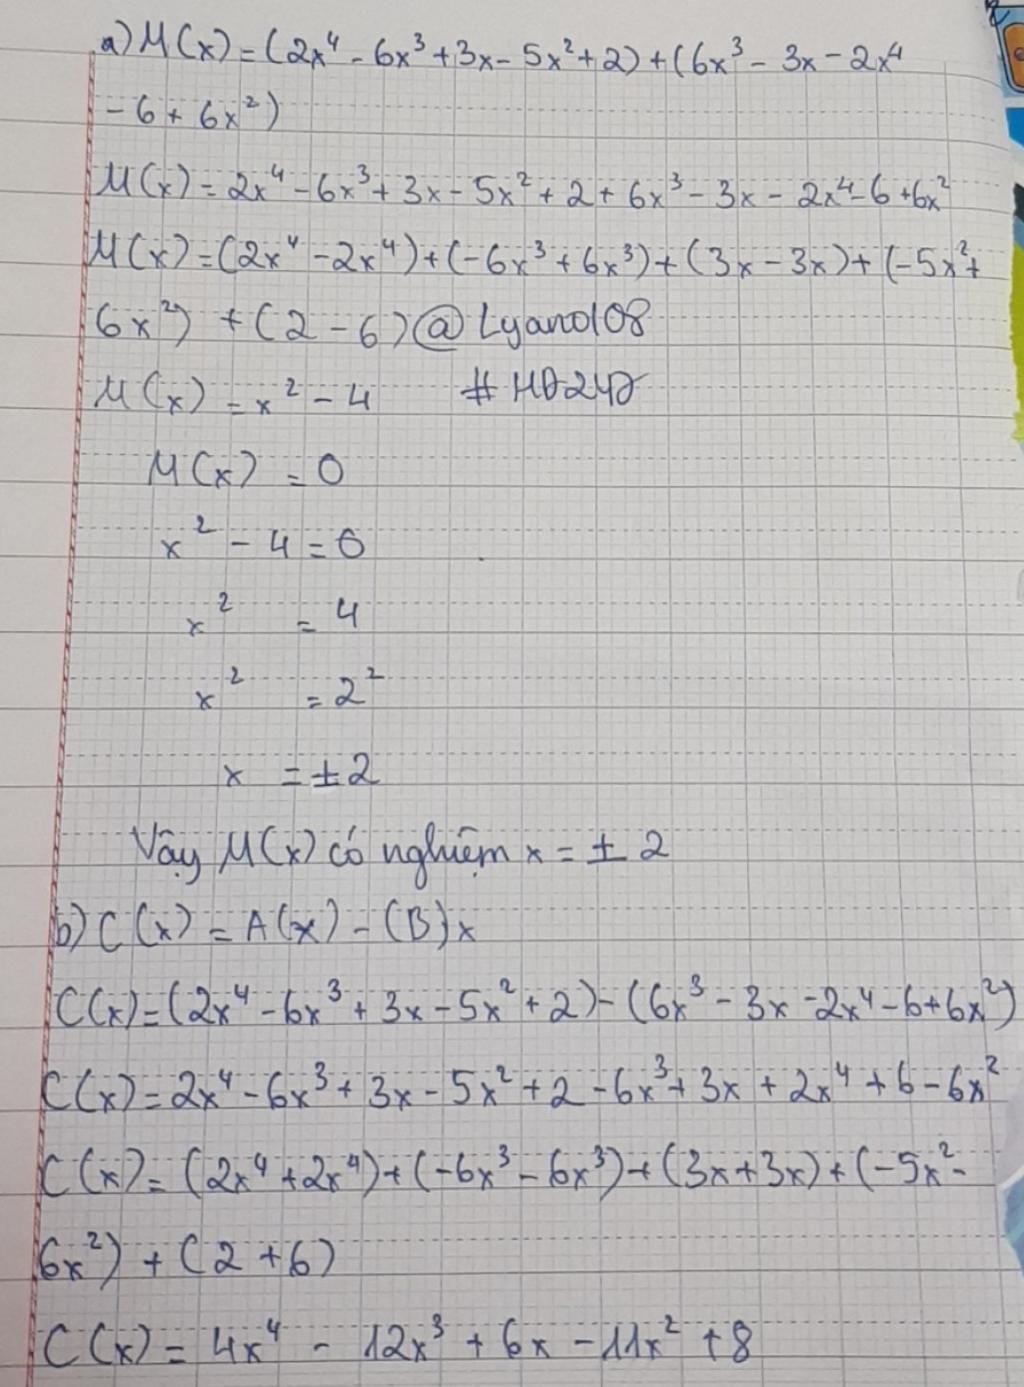 a) M(x) = (2x⁴ - 6x³ + 3x - 5x² + 2) + (6x³ - 3x - 2x⁴
- 6 + 6x²)
M(x) = 2x⁴ - 6x³ + 3x - 5x² + 2 + 6x³ - 3x - 2x⁴ - 6 + 6x²
M(x) = (2x⁴ - 2x⁴) + (-6x³ + 6x³) + (3x - 3x) + (-5x² +
6x²) + (2 - 6) @Lyano108
M(x) = x² - 4
M(x) = 0
x² - 4 = 0
x² = 4
x² = 2²
x = ±2
Vậy M(x) có nghiệm x = ± 2
b) C(x) = A(x) - (B)x
C(x) = (2x⁴ - 6x³ + 3x - 5x² + 2) - (6x³ - 3x - 2x⁴ - 6 + 6x²)
C(x) = 2x⁴ - 6x³ + 3x - 5x² + 2 - 6x³ + 3x + 2x⁴ + 6 - 6x²
C(x) = (2x⁴ + 2x⁴) + (-6x³ - 6x³) + (3x + 3x) + (-5x² -
6x²) + (2 + 6)
C(x) = 4x⁴ - 12x³ + 6x - 11x² + 8